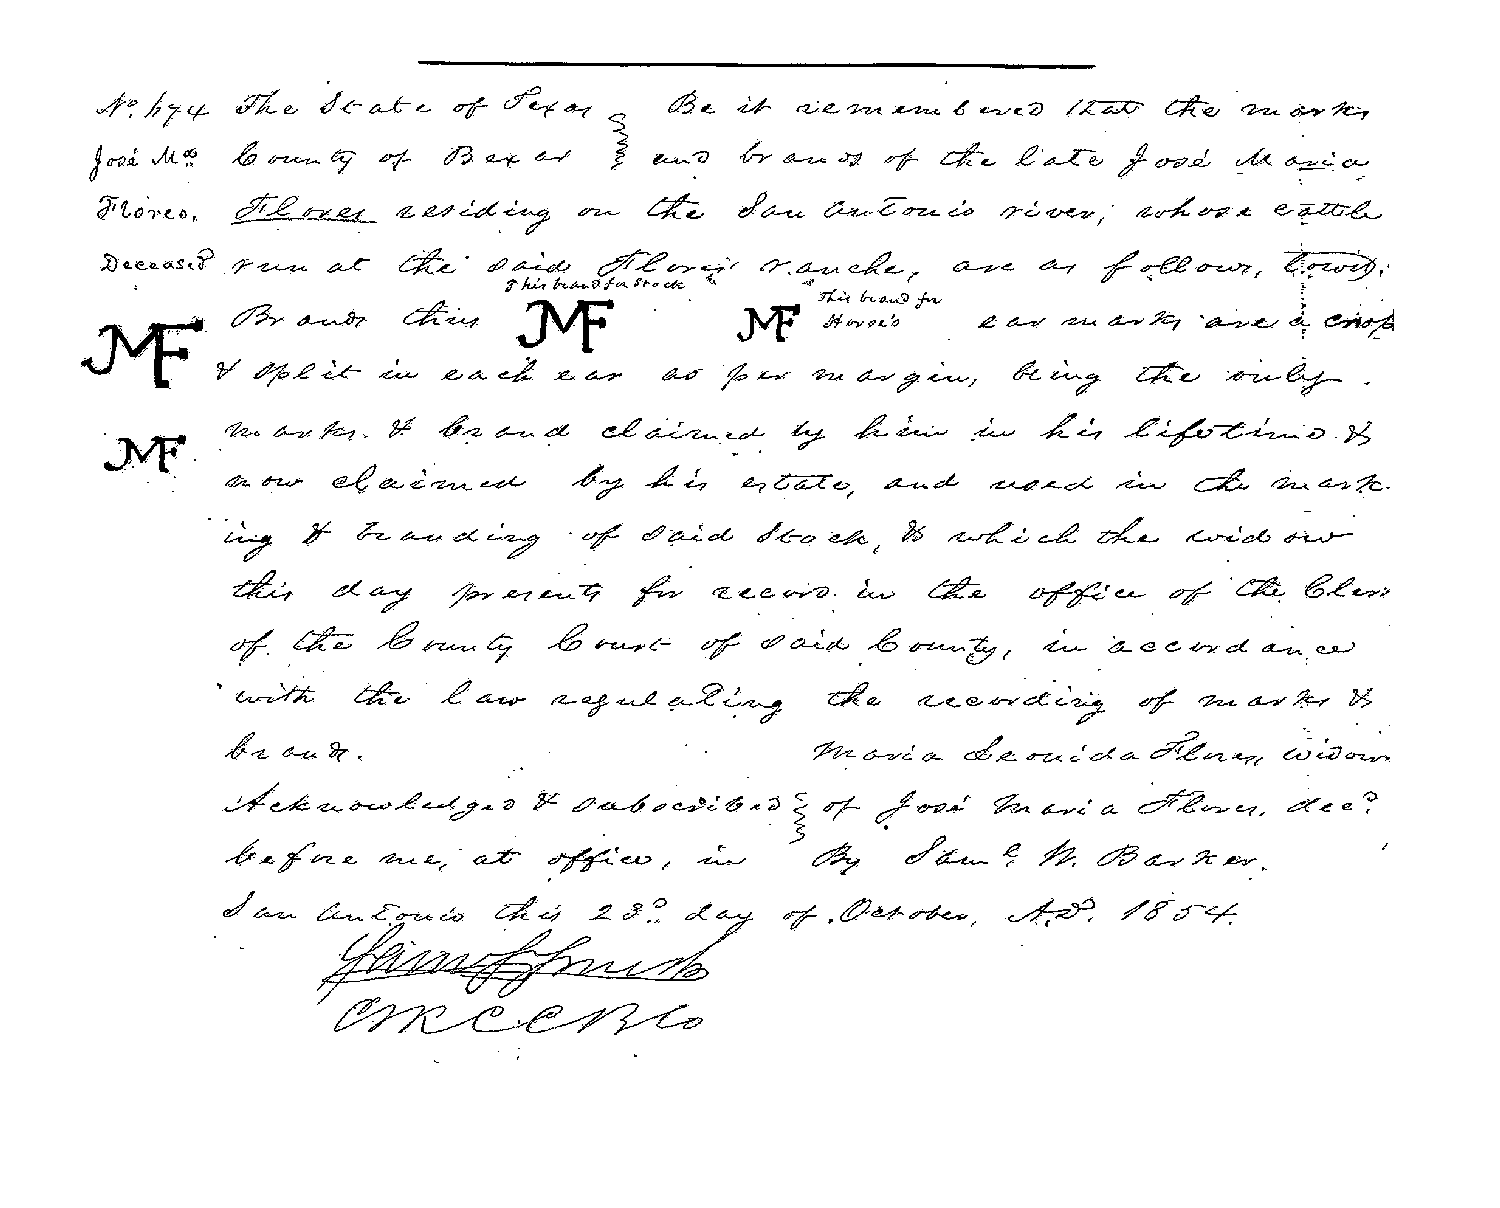 No. 674 The State of Texas } Be it remembered that the marks
José Ma. County of Bexar } and brands of the late José Maria
Flores, Flores residing on the San Antonio river, whose cattle
Deceased run at the said Flores' ranche, are as follows, towit:
This brand for stock This brand for
Brands thus JMF JMF Horses ear marks are a crop
JMF & split in each ear as per margin, being the only
JMF marks & brand claimed by him in his lifetime &
now claimed by his estate, and used in the mark-
ing & branding of said Stock, & which the widow
this day presents for record in the office of the Clerk
of the County Court of said County, in accordance
with the law regulating the recording of marks &
brands. Maria Leonida Flores, widow
Acknowledged & subscribed } of José Maria Flores, decd.
before me, at office, in By Saml. W. Barker.
San Antonio this 23d day of October, A.D. 1854.
CLKCCBCo